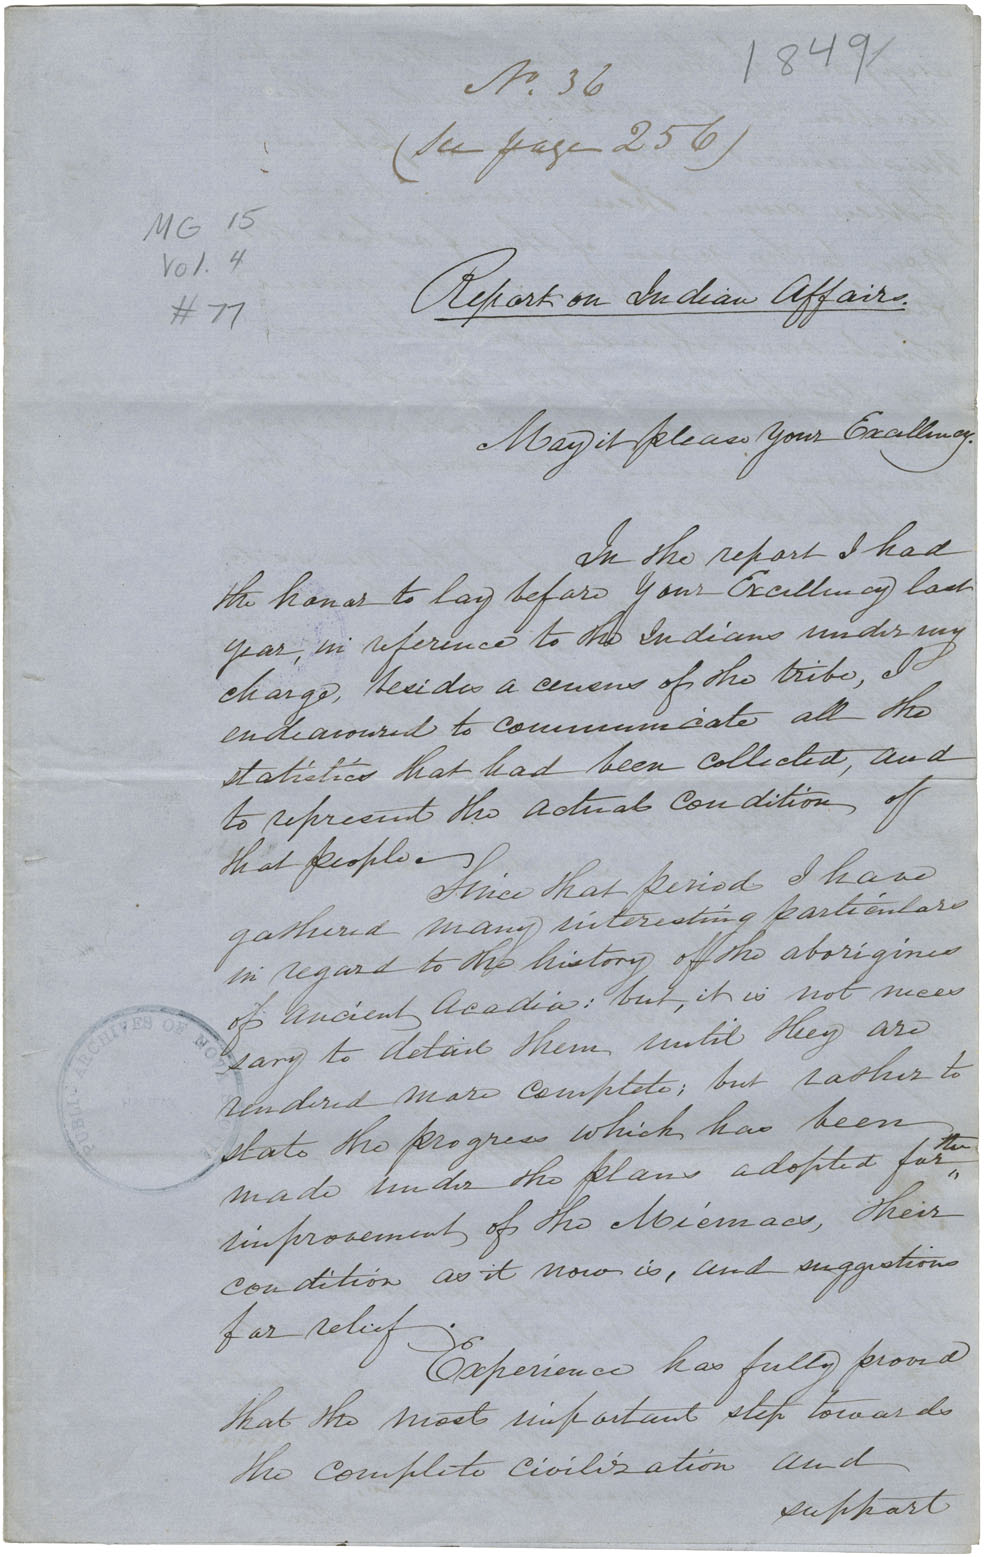 1849
No. 36
(see page 256)
MG 15
Vol. 4
# 77
Report on Indian Affairs.
May it please Your Excellency.
In the report I had
the honor to lay before Your Excellency last
year, in reference to the Indians under my
charge, besides a census of the tribe, I
endeavoured to communicate all the
statistics that had been collected, and
to represent the actual condition of
that people.
Since that period I have
gathered many interesting particulars
in regard to the history of the aborigines
of ancient Acadia: but, it is not neces
sary to detail them until they are
rendered more complete; but rather to
state the progress which has been
made under the plans adopted for the
improvement of the Micmacs, their
condition as it now is, and suggestions
for relief.
Experience has fully proved
that the most important step towards
the complete civilization and
support
PUBLIC ARCHIVES OF NOVA SCOTIA